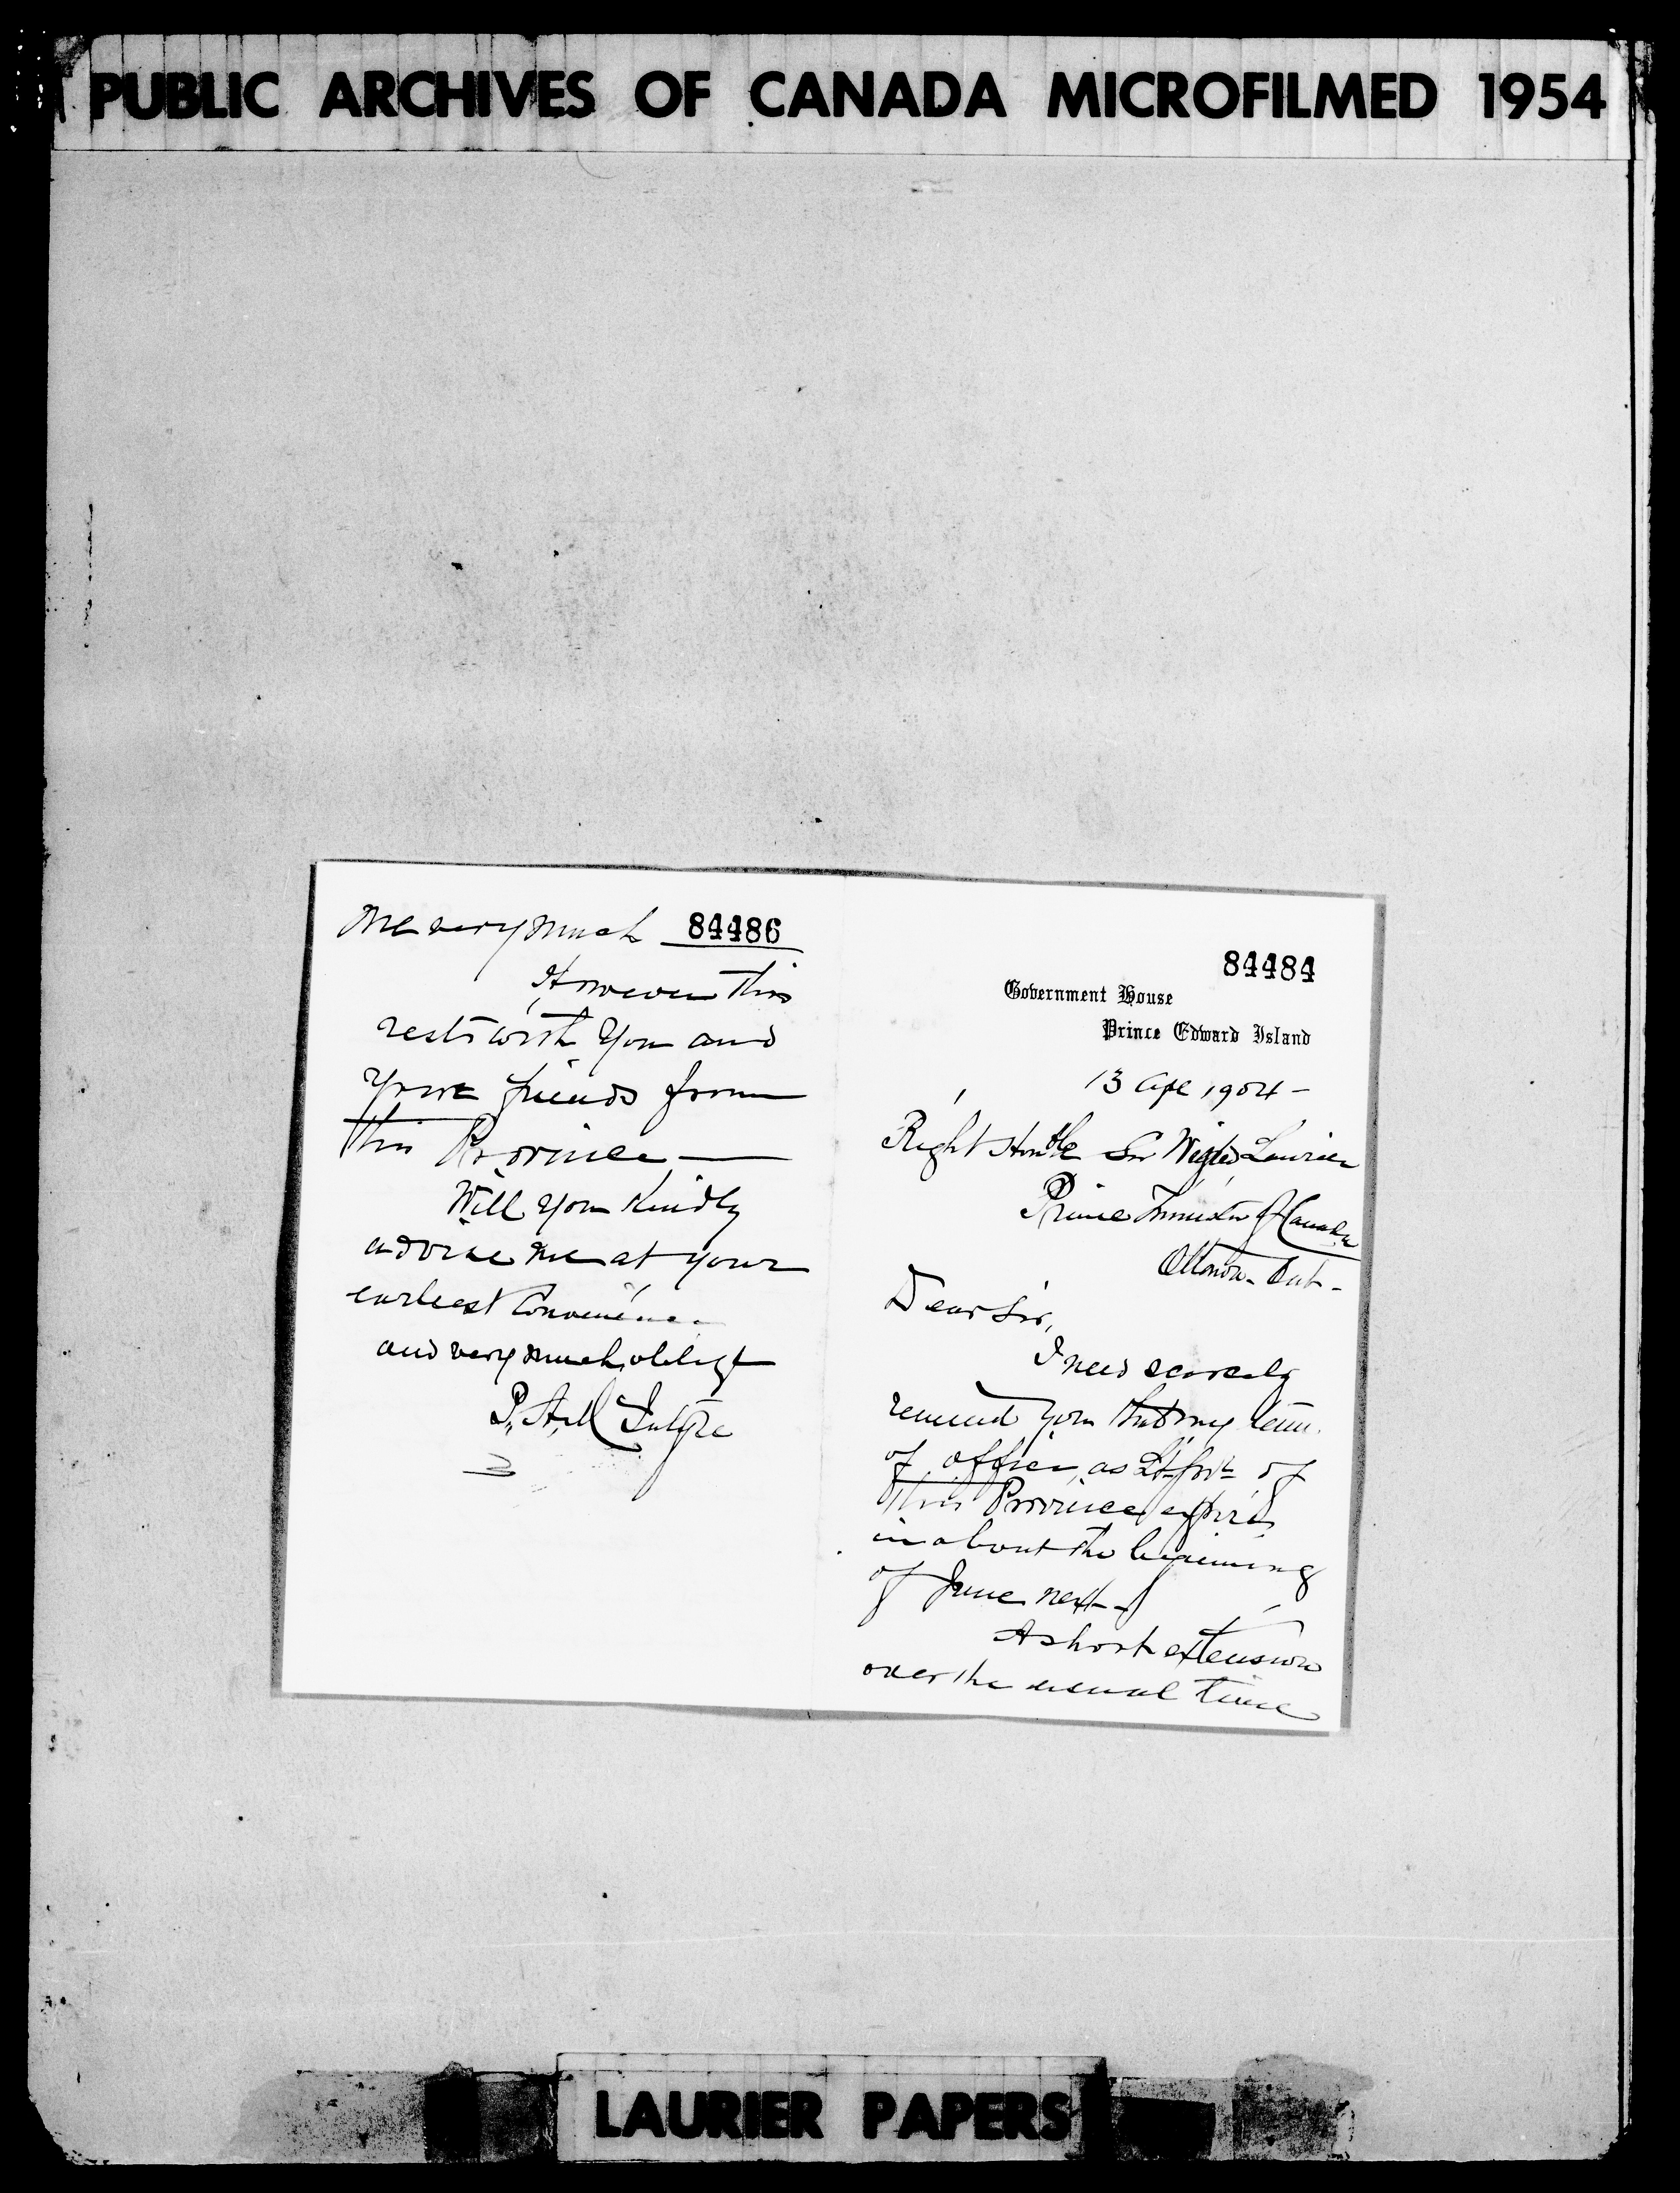 PUBLIC ARCHIVES OF CANADA MICROFILMED 1954
me very much 84486
However this
rests with you and
your friends from
this Province —
Will you kindly
advise me at your
earliest convenience
and very much oblige
P. A. McIntyre
84484
Government House
Prince Edward Island
13 Apl 1904 -
Right Honble Sir Wilfrid Laurier
Prime Minister of Canada
Ottawa - Ont -
Dear Sir,
I need scarcely
remind you that my term
of office, as Lt. Govr of
this Province expires
in about the beginning
of June next -
A short extension
over the usual time
LAURIER PAPERS